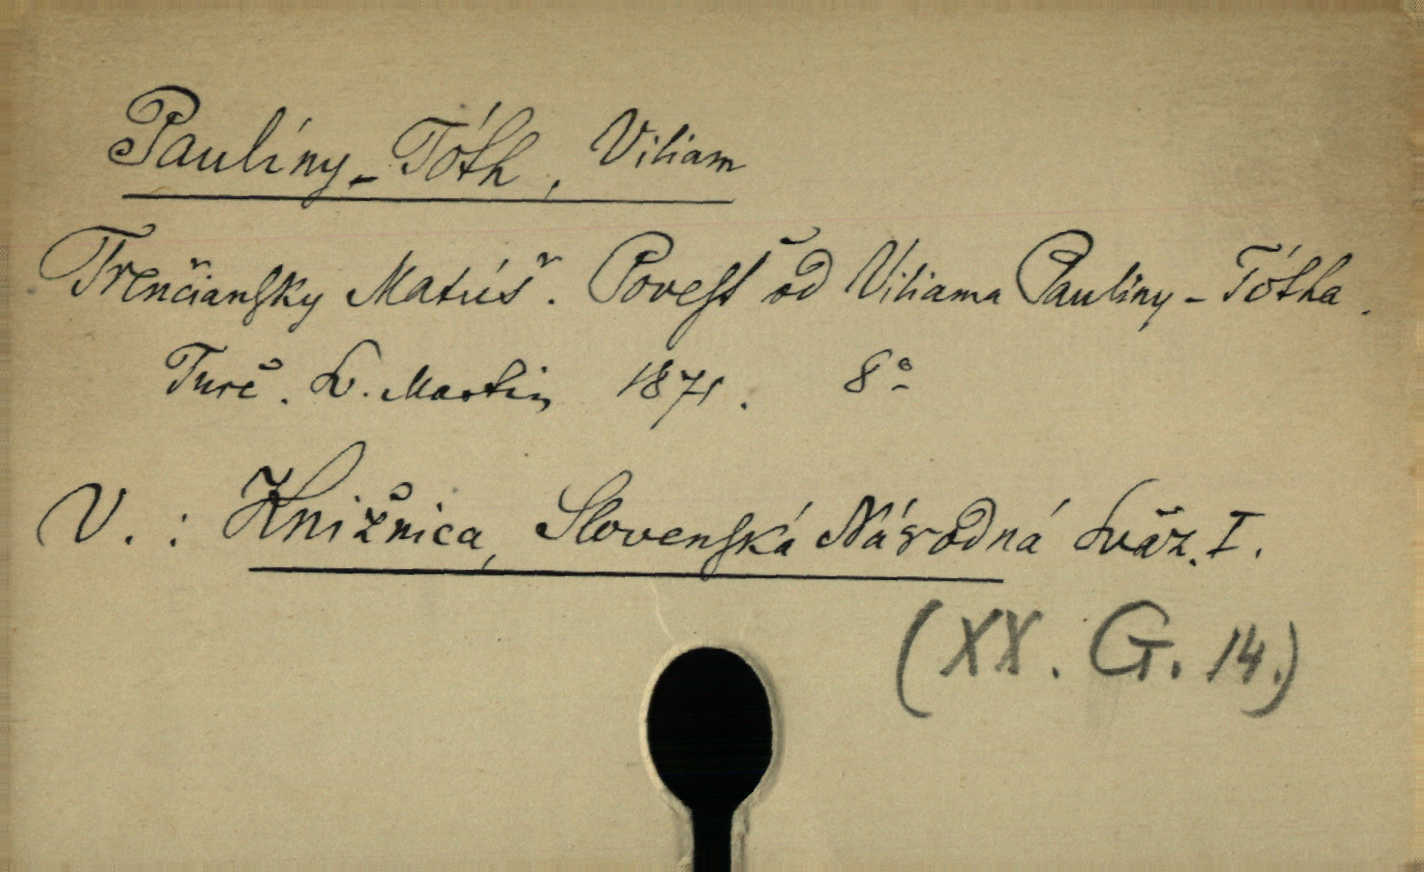 Paulíny-Tóth, Viliam
Trenčiansky Matúš. Povesť od Viliama Paulíny-Tótha.
Turč. Sv. Martin 1871. 8°
V.: Knižnica, Slovenská Národná Sväz. I.
(XX. G. 14.)